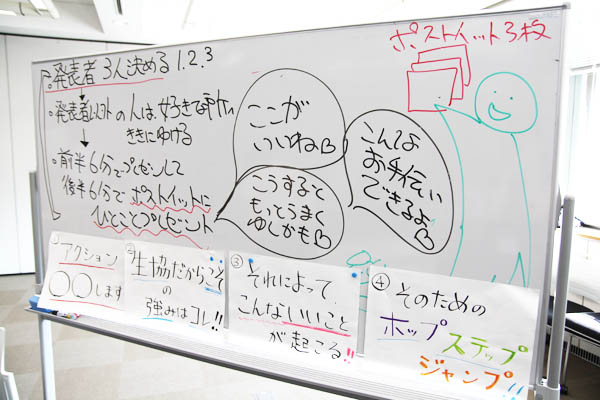 ・発表者 3人決める 1.2.3
・発表者以外の人は、好きな所に
ききにゆける
・前半6分でプレゼンして
後半6分で ポストイットに
ひとことプレゼント
ここが
いいね
こうすると
もっとうまく
ゆくかも
こんな
お手伝い
できるよ
ポストイット3枚
① アクション
〇〇します
② 生協だからこそ
の強みはコレ!!
③ それによって、
こんないいこと
が起こる!!
④ そのための
ホップ ステップ
ジャンプ!!